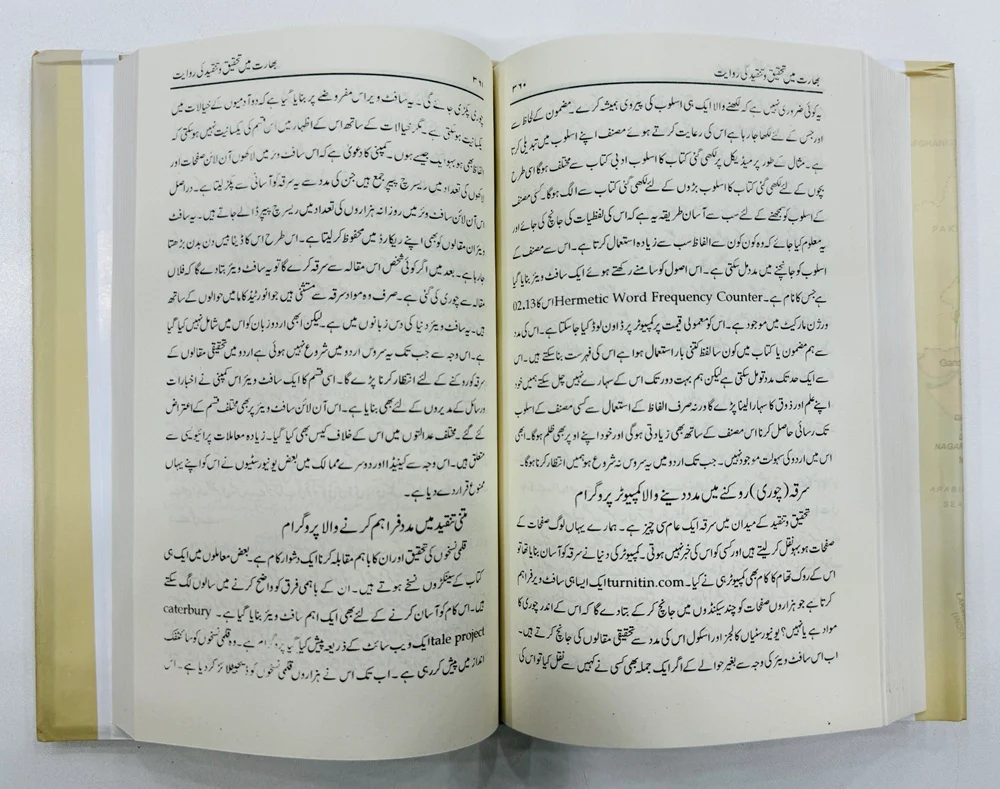 بھارت میں تحقیق و تنقید کی روایت
۳۶۰
یہ کوئی ضروری نہیں ہے کہ لکھنے والا ایک ہی اسلوب کی پیروی ہمیشہ کرے۔ مضمون کے لحاظ سے
اور جس کے لئے لکھا جا رہا ہے اس کی رعایت کرتے ہوئے مصنف اپنے اسلوب میں تبدیلی کرتا
ہے۔ مثال کے طور پر میڈیکل پر لکھی گئی کتاب کا اسلوب ادبی کتاب سے مختلف ہوگا اسی طرح
بچوں کے لئے لکھی گئی کتاب کا اسلوب بڑوں کے لئے لکھی گئی کتاب سے الگ ہوگا۔ کسی مصنف
کے اسلوب کو سمجھنے کے لئے سب سے آسان طریقہ یہ ہے کہ اس کی لفظیات کی جانچ کی جائے اور
یہ معلوم کیا جائے کہ وہ کون کون سے الفاظ سب سے زیادہ استعمال کرتا ہے۔ اس سے مصنف کے
اسلوب کو جانچنے میں مدد مل سکتی ہے۔ اس اصول کو سامنے رکھتے ہوئے ایک سافٹ ویئر بنایا گیا
ہے جس کا نام ہے۔ Hermetic Word Frequency Counter اس کا 02.13
ورژن مارکیٹ میں موجود ہے۔ اس کو معمولی قیمت پر کمپیوٹر پر ڈاون لوڈ کیا جا سکتا ہے۔ اس کی مدد
سے ہم مضمون یا کتاب میں کون سا لفظ کتنی بار استعمال ہوا ہے اس کی فہرست بنا سکتے ہیں۔ اس
سے ایک حد تک مدد تو مل سکتی ہے لیکن ہم بہت دور تک اس کے سہارے نہیں چل سکتے ہمیں خود
اپنے علم اور ذوق کا سہارا لینا پڑے گا ورنہ صرف الفاظ کے استعمال سے کسی مصنف کے اسلوب
تک رسائی حاصل کرنا اس مصنف کے ساتھ بھی زیادتی ہوگی اور خود اپنے اوپر بھی ظلم ہوگا۔ ابھی
اس میں اردو کی سہولت موجود نہیں۔ جب تک اردو میں یہ سروس نہ شروع ہو ہمیں انتظار کرنا ہوگا۔
سرقہ (چوری) روکنے میں مدد دینے والا کمپیوٹر پروگرام
تحقیق و تنقید کے میدان میں سرقہ ایک عام سی چیز ہے۔ ہمارے یہاں لوگ صفحات کے
صفحات ہوبہو نقل کر لیتے ہیں اور کسی کو اس کی خبر نہیں ہوتی۔ کمپیوٹر کی دنیا نے سرقہ کو آسان بنایا تھا تو
اس کے روک تھام کا کام بھی کمپیوٹر ہی نے کیا۔ turnitin.com ایک ایسا ہی سافٹ ویر فراہم
کرتا ہے جو ہزاروں صفحات کو چند سیکنڈوں میں جانچ کر کے بتا دے گا کہ اس کے اندر چوری کا
مواد ہے یا نہیں؟ یونیورسٹیاں کالجز اور اسکول اس کی مدد سے تحقیقی مقالوں کی جانچ کرتے ہیں۔
اب اس سافٹ ویئر کی وجہ سے بغیر حوالے کے اگر ایک جملہ بھی کسی نے کہیں سے نقل کیا تو اس کی
بھارت میں تحقیق و تنقید کی روایت
۳۶۱
چوری پکڑی جائے گی۔ یہ سافٹ ویر اس مفروضے پر بنایا گیا ہے کہ دو آدمیوں کے خیالات میں
یکسانیت ہو سکتی ہے۔ مگر خیالات کے ساتھ اس کے اظہار میں اس قسم کی یکسانیت نہیں ہو سکتی کہ
الفاظ بھی ہوبہو ایک جیسے ہوں۔ کمپنی کا دعویٰ ہے کہ اس سافٹ ویر میں لاکھوں آن لائن صفحات اور
لاکھوں کی تعداد میں ریسرچ پیپر جمع ہیں جن کی مدد سے یہ سرقہ کو آسانی سے پکڑ لیتا ہے۔ دراصل
اس آن لائن سافٹ ویئر میں روزانہ ہزاروں کی تعداد میں ریسرچ پیپر ڈالے جاتے ہیں۔ یہ سافٹ
ویئر ان مقالوں کو بھی اپنے ریکارڈ میں محفوظ کر لیتا ہے۔ اس طرح اس کا ڈیٹا بیس دن بدن بڑھتا
جا رہا ہے۔ بعد میں اگر کوئی شخص اس مقالہ سے سرقہ کرے گا تو یہ سافٹ ویئر بتا دے گا کہ فلاں
مقالہ سے چوری کی گئی ہے۔ صرف وہ مواد سرقہ سے مستثنیٰ ہیں جو انورٹیڈ کاما میں حوالوں کے ساتھ
ہیں۔ یہ سافٹ ویئر دنیا کی دس زبانوں میں ہے۔ لیکن ابھی اردو زبان کو اس میں شامل نہیں کیا گیا
ہے۔ اس وجہ سے جب تک یہ سروس اردو میں شروع نہیں ہوئی ہے اردو میں تحقیقی مقالوں کے
سرقہ کو روکنے کے لئے انتظار کرنا پڑے گا۔ اسی قسم کا ایک سافٹ ویئر اس کمپنی نے اخبارات
و رسائل کے مدیروں کے لئے بھی بنایا ہے۔ اس آن لائن سافٹ ویئر پر بھی مختلف قسم کے اعتراض
کئے گئے۔ مختلف عدالتوں میں اس کے خلاف کیس بھی کیا گیا۔ زیادہ معاملات پرائیویسی سے
متعلق ہیں۔ اس وجہ سے کینیڈا اور دوسرے ممالک میں بعض یونیورسٹیوں نے اس کو اپنے یہاں
ممنوع قرار دے دیا ہے۔
متنی تنقید میں مدد فراہم کرنے والا پروگرام
قلمی نسخوں کی تحقیق اور ان کا باہم مقابلہ کرنا ایک دشوار کام ہے۔ بعض معاملوں میں ایک ہی
کتاب کے سینکڑوں نسخے ہوتے ہیں۔ ان کے باہمی فرق کو واضح کرنے میں سالوں لگ سکتے
ہیں۔ اس کام کو آسان کرنے کے لئے بھی ایک اہم سافٹ ویئر بنایا گیا ہے۔ caterbury
tale project ایک ویب سائٹ کے ذریعہ پیش کیا گیا پروگرام ہے۔ وہ قلمی نسخوں کو سائنٹفک
انداز میں پیش کر رہی ہے۔ اب تک اس نے ہزاروں قلمی نسخوں کو ڈیجیٹلائز کر دیا ہے۔ اس